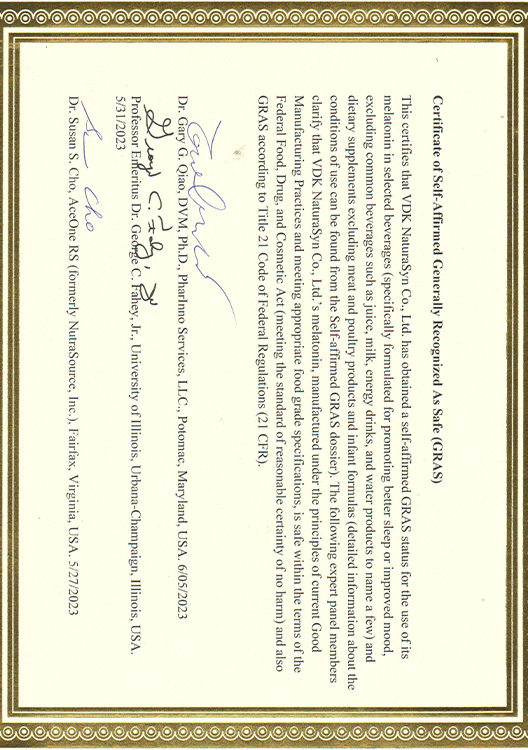 Certificate of Self-Affirmed Generally Recognized As Safe (GRAS)
This certifies that VDK NaturaSyn Co., Ltd. has obtained a self-affirmed GRAS status for the use of its
melatonin in selected beverages (specifically formulated for promoting better sleep or improved mood,
excluding common beverages such as juice, milk, energy drinks, and water products to name a few) and
dietary supplements excluding meat and poultry products and infant formulas (detailed information about the
conditions of use can be found from the Self-affirmed GRAS dossier). The following expert panel members
clarify that VDK NaturaSyn Co., Ltd.'s melatonin, manufactured under the principles of current Good
Manufacturing Practices and meeting appropriate food grade specifications, is safe within the terms of the
Federal Food, Drug, and Cosmetic Act (meeting the standard of reasonable certainty of no harm) and also
GRAS according to Title 21 Code of Federal Regulations (21 CFR).
Dr. Gary G. Qiao, DVM, Ph.D., PharInno Services, LLC., Potomac, Maryland, USA. 6/05/2023
George C. Fahey, Jr
Professor Emeritus Dr. George C. Fahey, Jr., University of Illinois, Urbana-Champaign, Illinois, USA.
5/31/2023
Cho
Dr. Susan S. Cho, AceOne RS (formerly NutraSource, Inc.), Fairfax, Virginia, USA. 5/27/2023